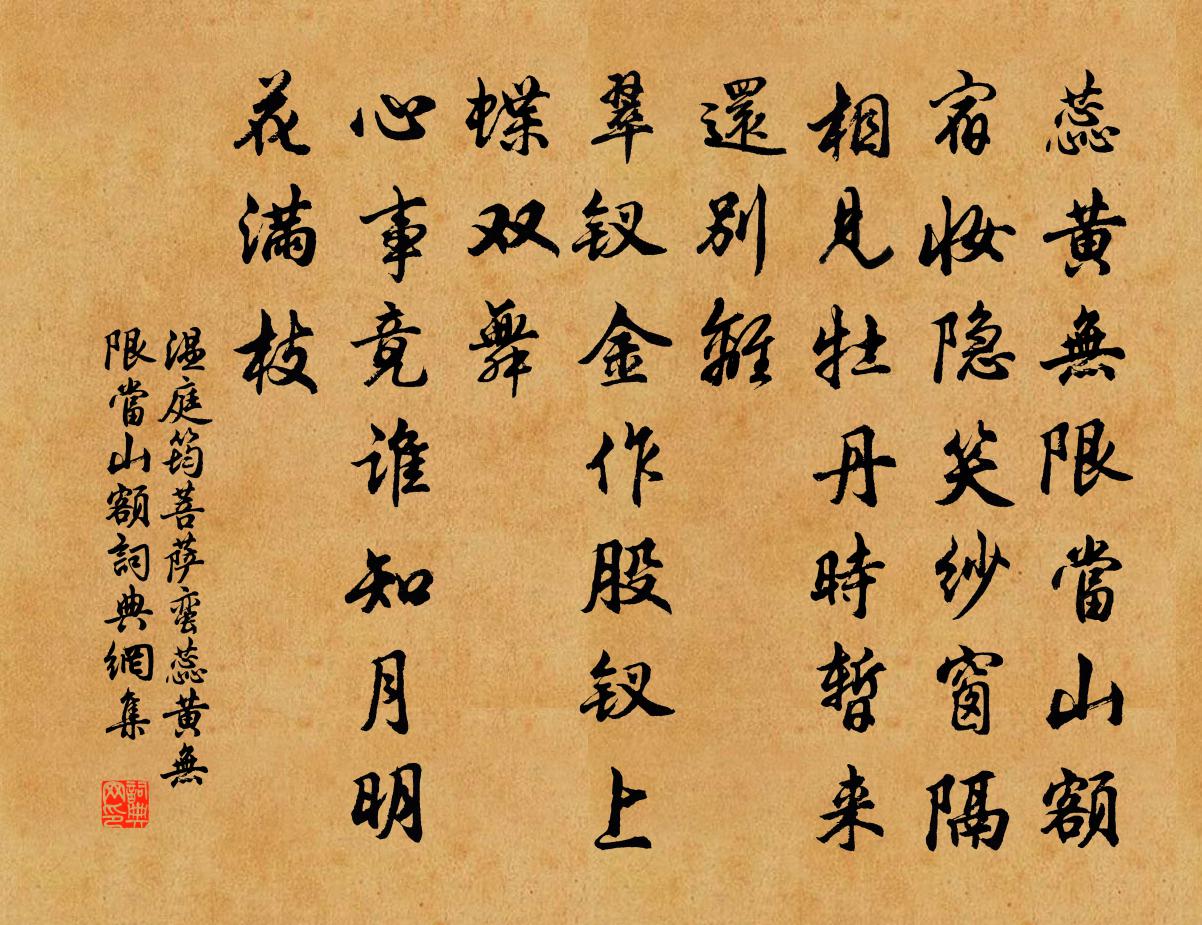 蕊黄無限當山額
宿妆隐笑纱窗隔
相見牡丹時暫来
還别離
翠钗金作股钗上
蝶双舞
心事竟谁知月明
花满枝
温庭筠菩萨蛮蕊黄無
限當山額詞典網集
詞典
网印